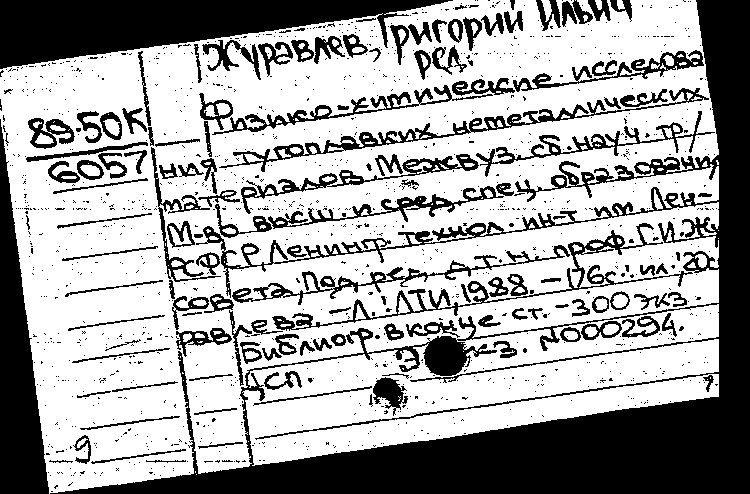 Журавлев, Григорий Ильич
ред.
89-50К
6057
Физико-химические исследова
ния тугоплавких неметаллических
материалов: Межвуз. сб. науч. тр/
М-во высш. и сред. спец. образования
РСФСР, Ленингр. технол. ин-т им. Лен-
совета; Под ред. д.т.н. проф. Г.И.Жу
равлева. -Л.: ЛТИ, 1988. -176с.: ил.; 20.
Библиогр. в конце ст. -300 экз.
Дсп. Экз. N000294.
9